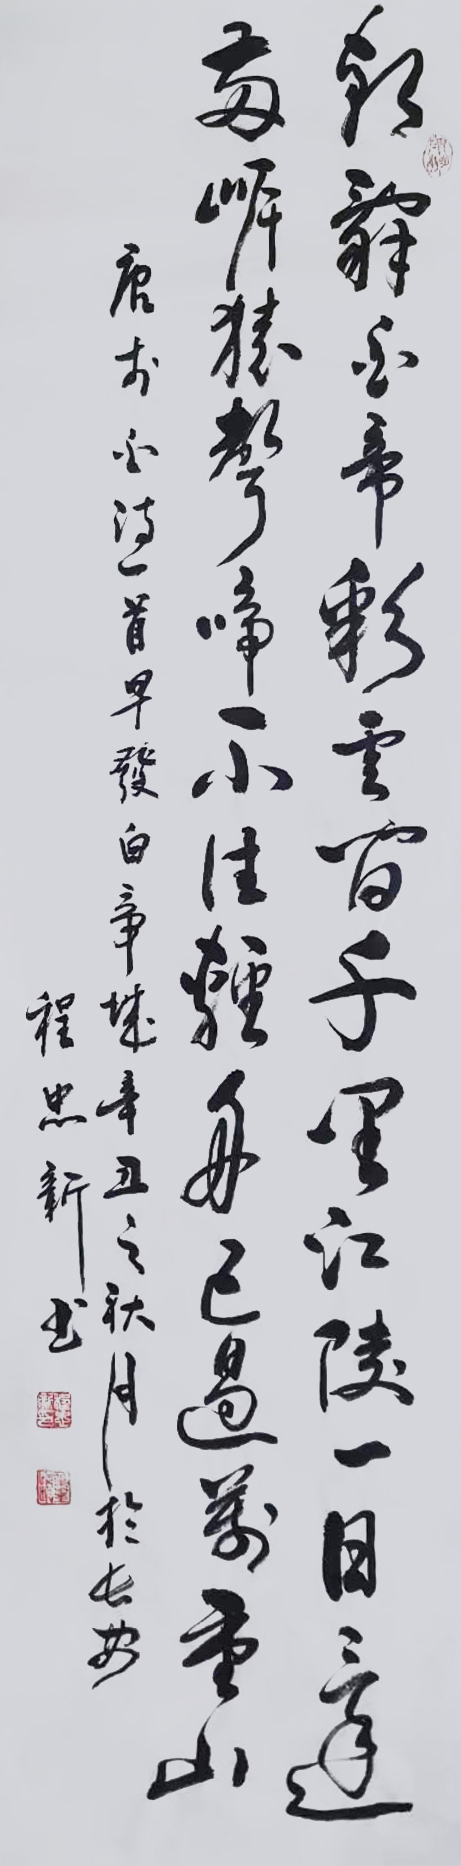 朝辭白帝彩雲間千里江陵一日還
兩岸猿聲啼不住輕舟已過萬重山
唐李白詩一首早發白帝城辛丑之秋月於長安
程忠新书